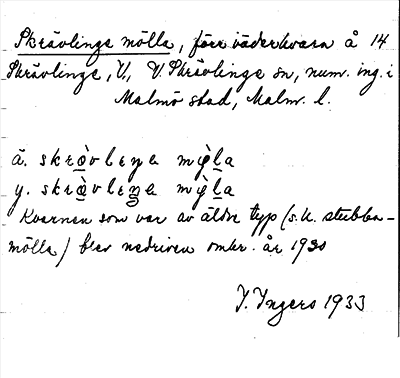 Skrävlinge mölla, förr väderkvarn å 14
Skrävlinge, V., V. Skrävlinge sn, num. ing. i
Malmö stad, Malm. l.
ä. skrävleŋe my̆la
y. skrävleŋe my̆la
Kvarnen som var av äldre typ (s.k. stubba-
mölla) blev nedriven omkr. år 1930
I. Ingers 1933